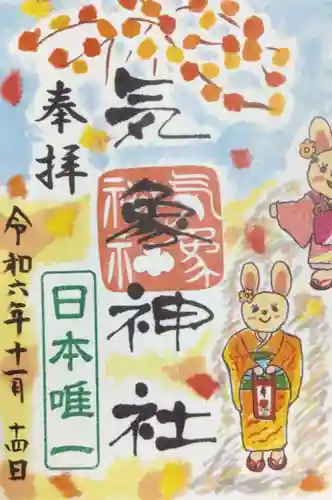 奉拝
氣象神社
気象神社
日本唯一
令和六年十一月十四日